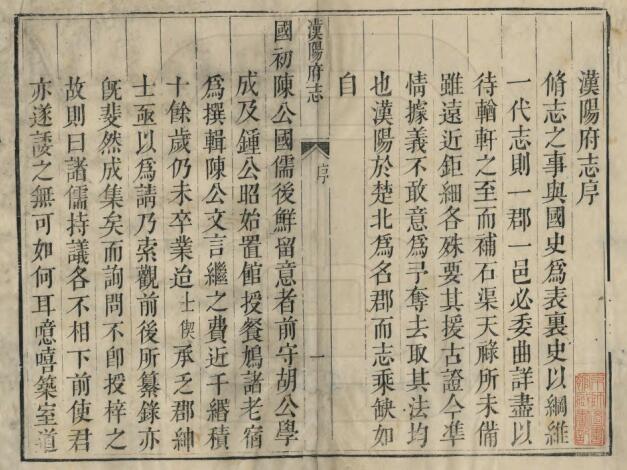 漢陽府志序
脩志之事與國史爲表裏史以綱維
一代志則一郡一邑必委曲詳盡以
待輶軒之至而補石渠天祿所未備
雖遠近鉅細各殊要其援古證今準
情據義不敢意爲予奪去取其法均
也漢陽於楚北爲名郡而志乘缺如
自
漢陽府志 序 一
國初陳公國儒後鮮留意者前守胡公學
成及鍾公昭始置館授餐鳩諸老宿
爲撰輯陳公文言繼之費近千緡積
十餘歲仍未卒業迨士偰承乏郡紳
士亟以爲請乃索觀前後所纂錄亦
旣斐然成集矣而詢問不卽授梓之
故則曰諸儒持議各不相下前使君
亦遂諉之無可如何耳噫嘻築室道